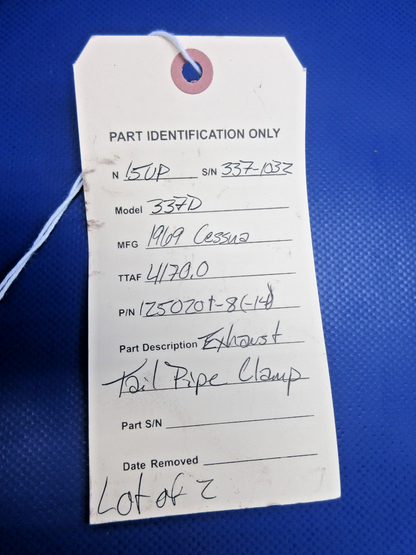 PART IDENTIFICATION ONLY
N 15UP S/N 337-1032
Model 337D
MFG 1969 Cessna
TTAF 4170.0
P/N 1250201-8(-14)
Part Description Exhaust
Tail Pipe Clamp
Part S/N
Date Removed
Lot of 2